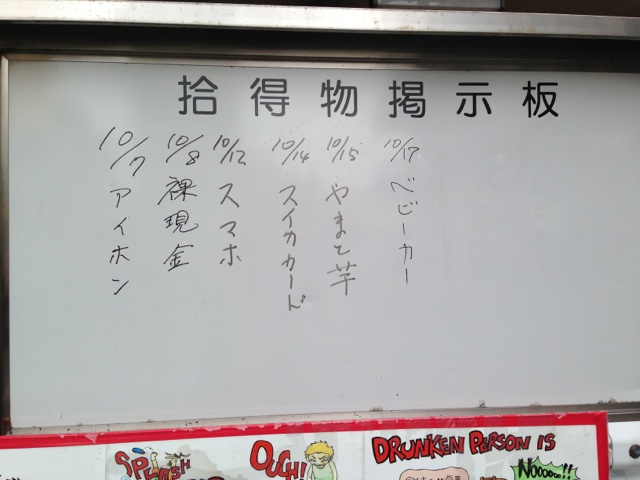 拾得物掲示板
10/7 アイホン
10/8 裸現金
10/12 スマホ
10/14 スイカカード
10/15 やまと芋
10/17 ベビーカー
SPLASH
OUCH!
DRUNKEN PERSON IS
NOoooo!!